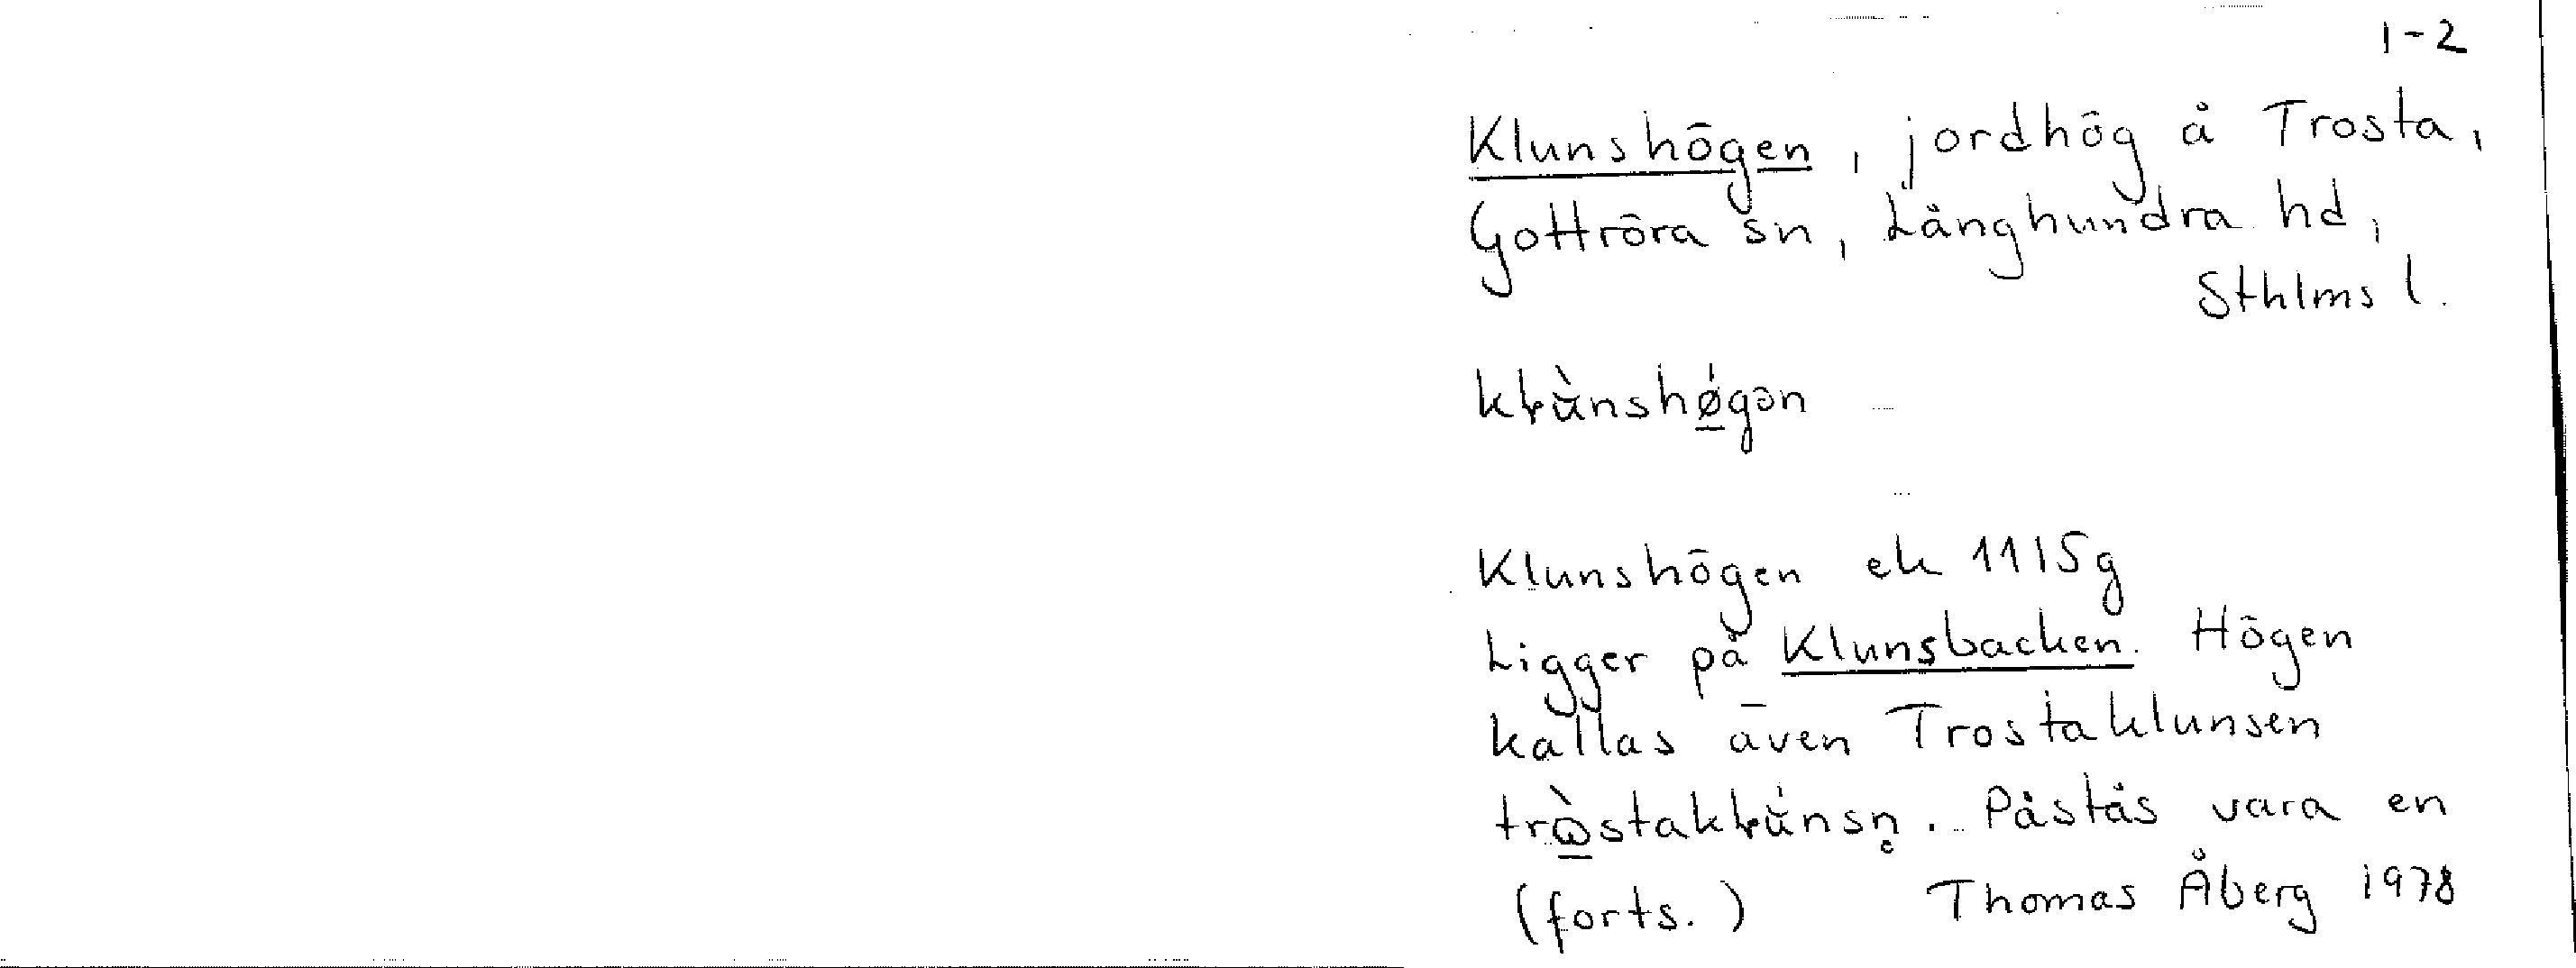 1-2
Klunshögen, jordhög å Trosta,
Gottröra sn, Långhundra hd,
Sthlms l.
kɭùnshǿgən
Klunshögen ek 11I5g
Ligger på Klunsbacken. Högen
kallas även Trostaklunsen
trɷ̀stakɭúnsn̥. Påstås vara en
(forts.) Thomas Åberg 1978